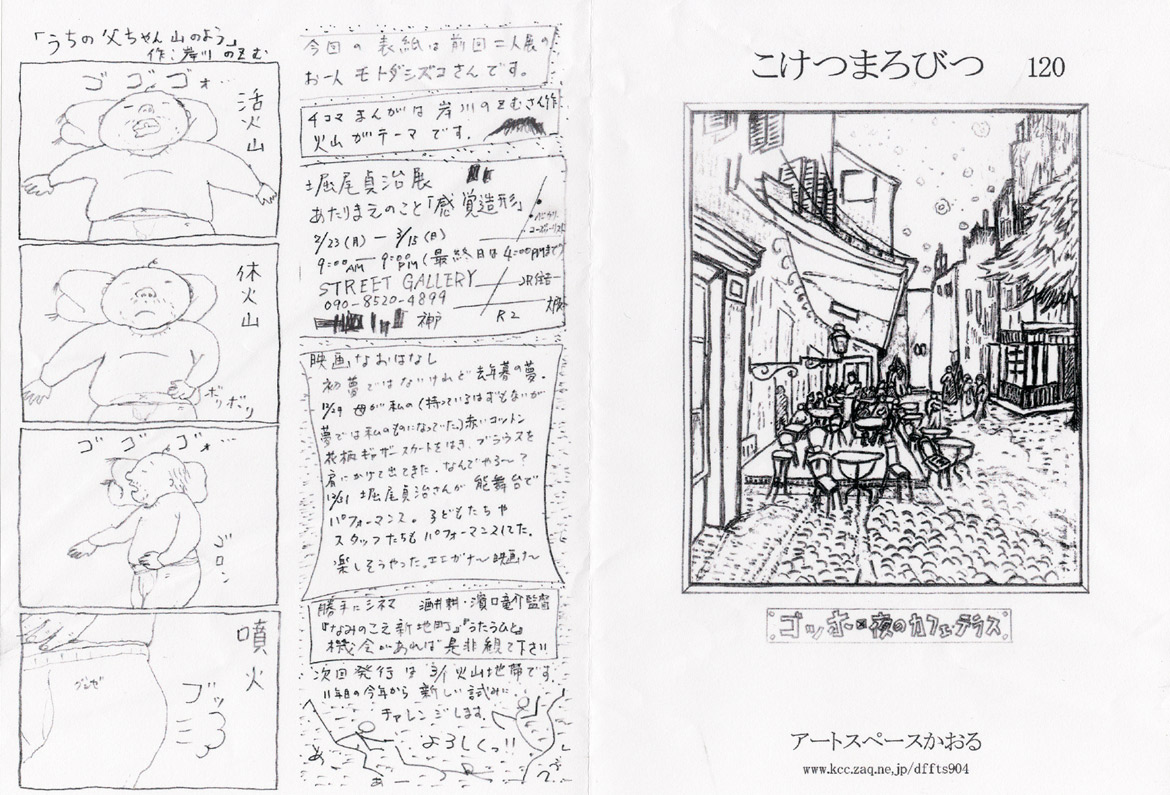 「うちの父ちゃん山のよう」
作:岸川 のぞむ
ゴ ゴ ゴォ…
活火山
休火山
ボリボリ
ゴ ゴ ゴォ…
ゴロン
噴火
ブッ
今回の表紙は前回二人展の
お一人 モトダシズコさんです。
4コマまんがは 岸川のぞむさん作
火山がテーマです。
堀尾貞治展
あたりまえのこと「感覚造形」
2/23(月)ー3/15(日)
9:00AMー9:00PM(最終日は4:00PMまで)
STREET GALLERY
090-8520-4899
神戸
JR住吉
R2
映画なおはなし
初夢ではないけれど去年暮の夢。
12/29 母が私の(持っているはずもないが
夢では私のものになっていた)赤いコットン
花柄ギャザースカートをはき、ブラウスを
肩にかけて出てきた。なんでやろ〜?
12/31 堀尾貞治さんが能舞台で
パフォーマンス。子どもたちや
スタッフたちもパフォーマンスしてた。
楽しそうやった。エエガナ〜映画ナ〜
勝手にシネマ 酒井耕・濱口竜介監督
『なみのこえ新地町』『うたうひと』
機会があれば是非観て下さい
次回発行は3/1火山地帯です。
11年目の今年から 新しい試みに
チャレンジします。
よろしくっ!!
こけつまろびつ 120
ゴッホ 夜のカフェテラス
アートスペースかおる
www.kcc.zaq.ne,jp/dffts904